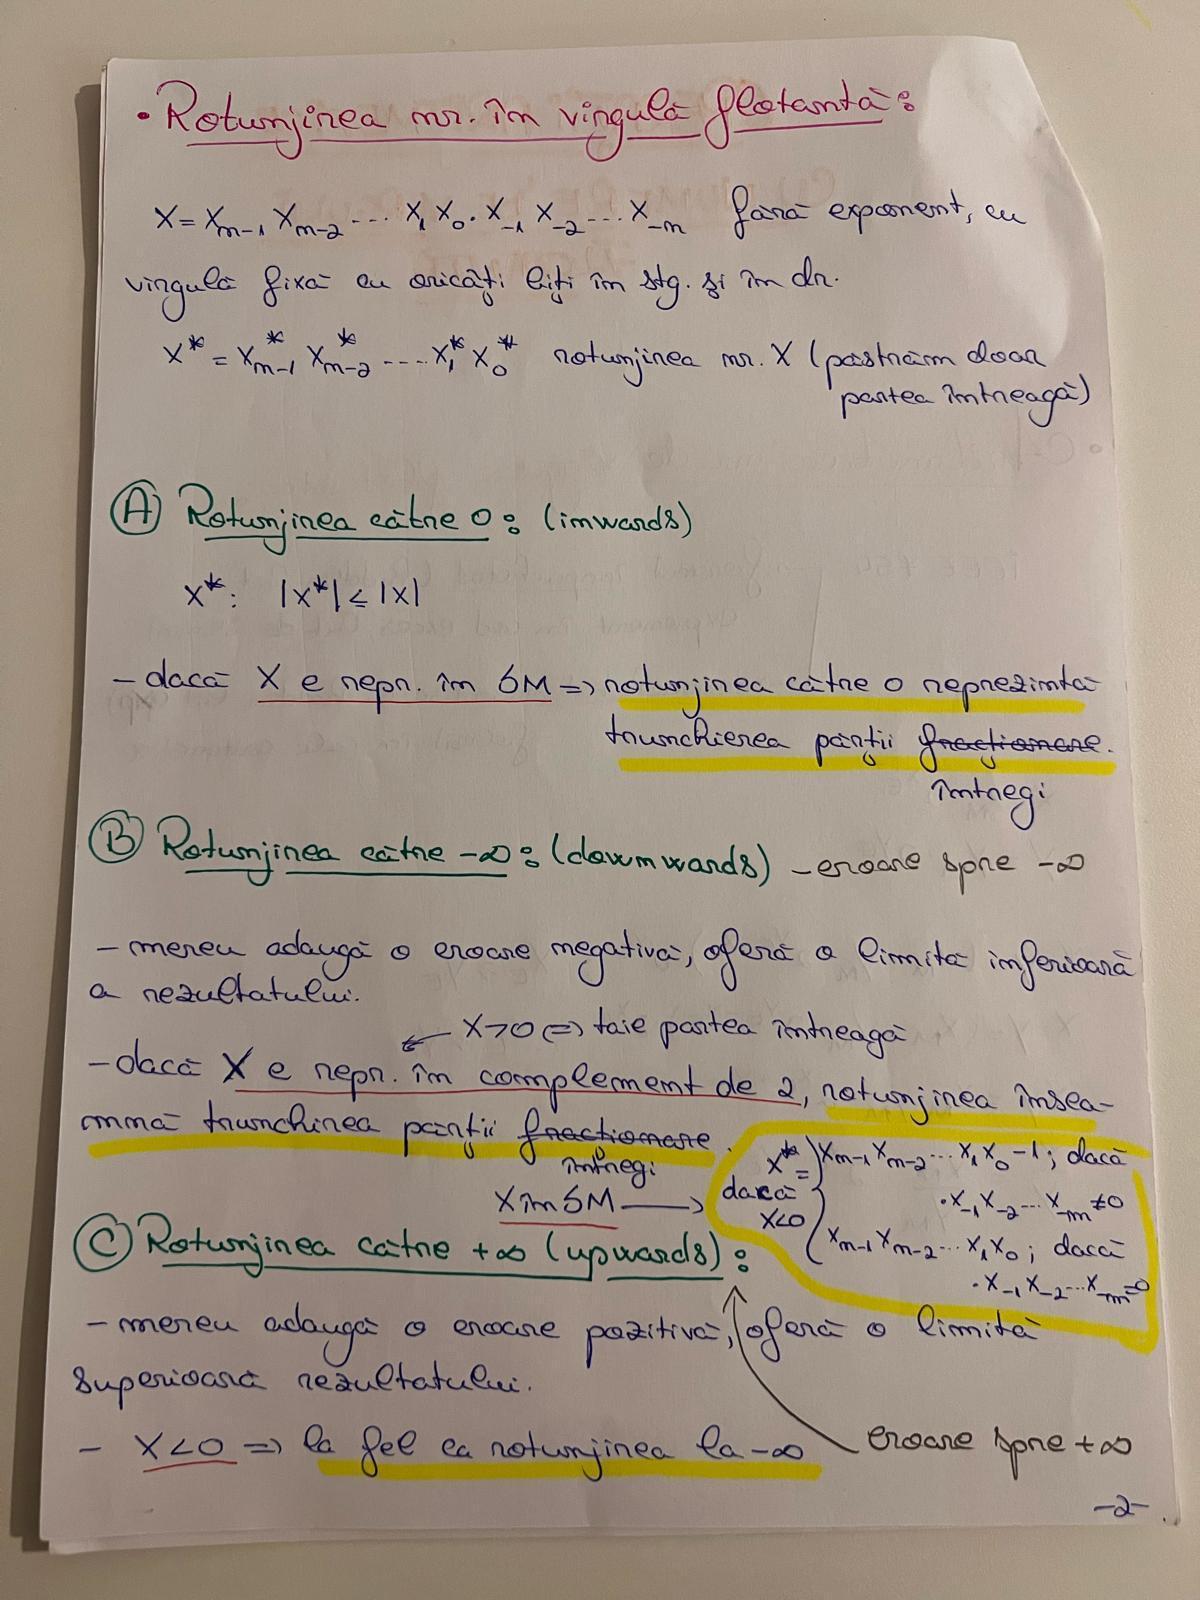 • Rotunjirea nr. în virgulă flotantă:
X = Xm-1 Xm-2 ... X1 X0 . X-1 X-2 ... X-m fără exponent, cu
virgulă fixă cu oricâți biți în stg. și în dr.
X* = X*m-1 X*m-2 .... X1* X0* rotunjirea nr. X (păstrăm doar
partea întreagă)
(A) Rotunjirea către 0: (inwards)
X*: |X*| ≤ |X|
- dacă X e repr. în SM => rotunjirea către 0 reprezintă
trunchierea părții fracționare.
întregi
(B) Rotunjirea către -∞: (downwards) - eroare spre -∞
- mereu adaugă o eroare negativă, oferă o limită inferioară
a rezultatului.
← X>0 => taie partea întreagă
- dacă X e repr. în complement de 2, rotunjirea însea-
mnă trunchirea părții fracționare.
întregi
X în SM → dacă X<0 X* = { Xm-1 Xm-2 ... X1 X0 - 1; dacă
. X-1 X-2 ... X-m ≠ 0
Xm-1 Xm-2 ... X1 X0; dacă
. X-1 X-2 ... X-m = 0
(C) Rotunjirea către +∞ (upwards):
- mereu adaugă o eroare pozitivă, oferă o limită
superioară rezultatului.
- X<0 => la fel ca rotunjirea la -∞
eroare spre +∞
-2-